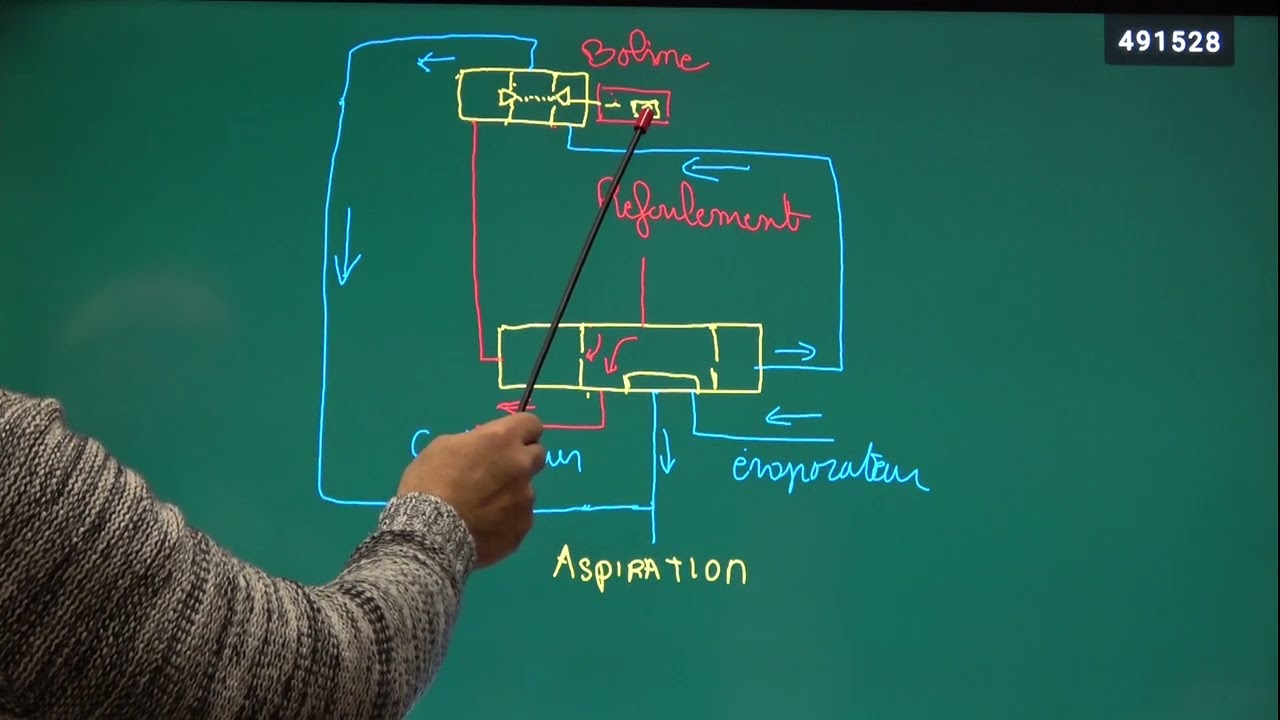 491528
Bobine
Refoulement
évaporateur
ASPIRATION